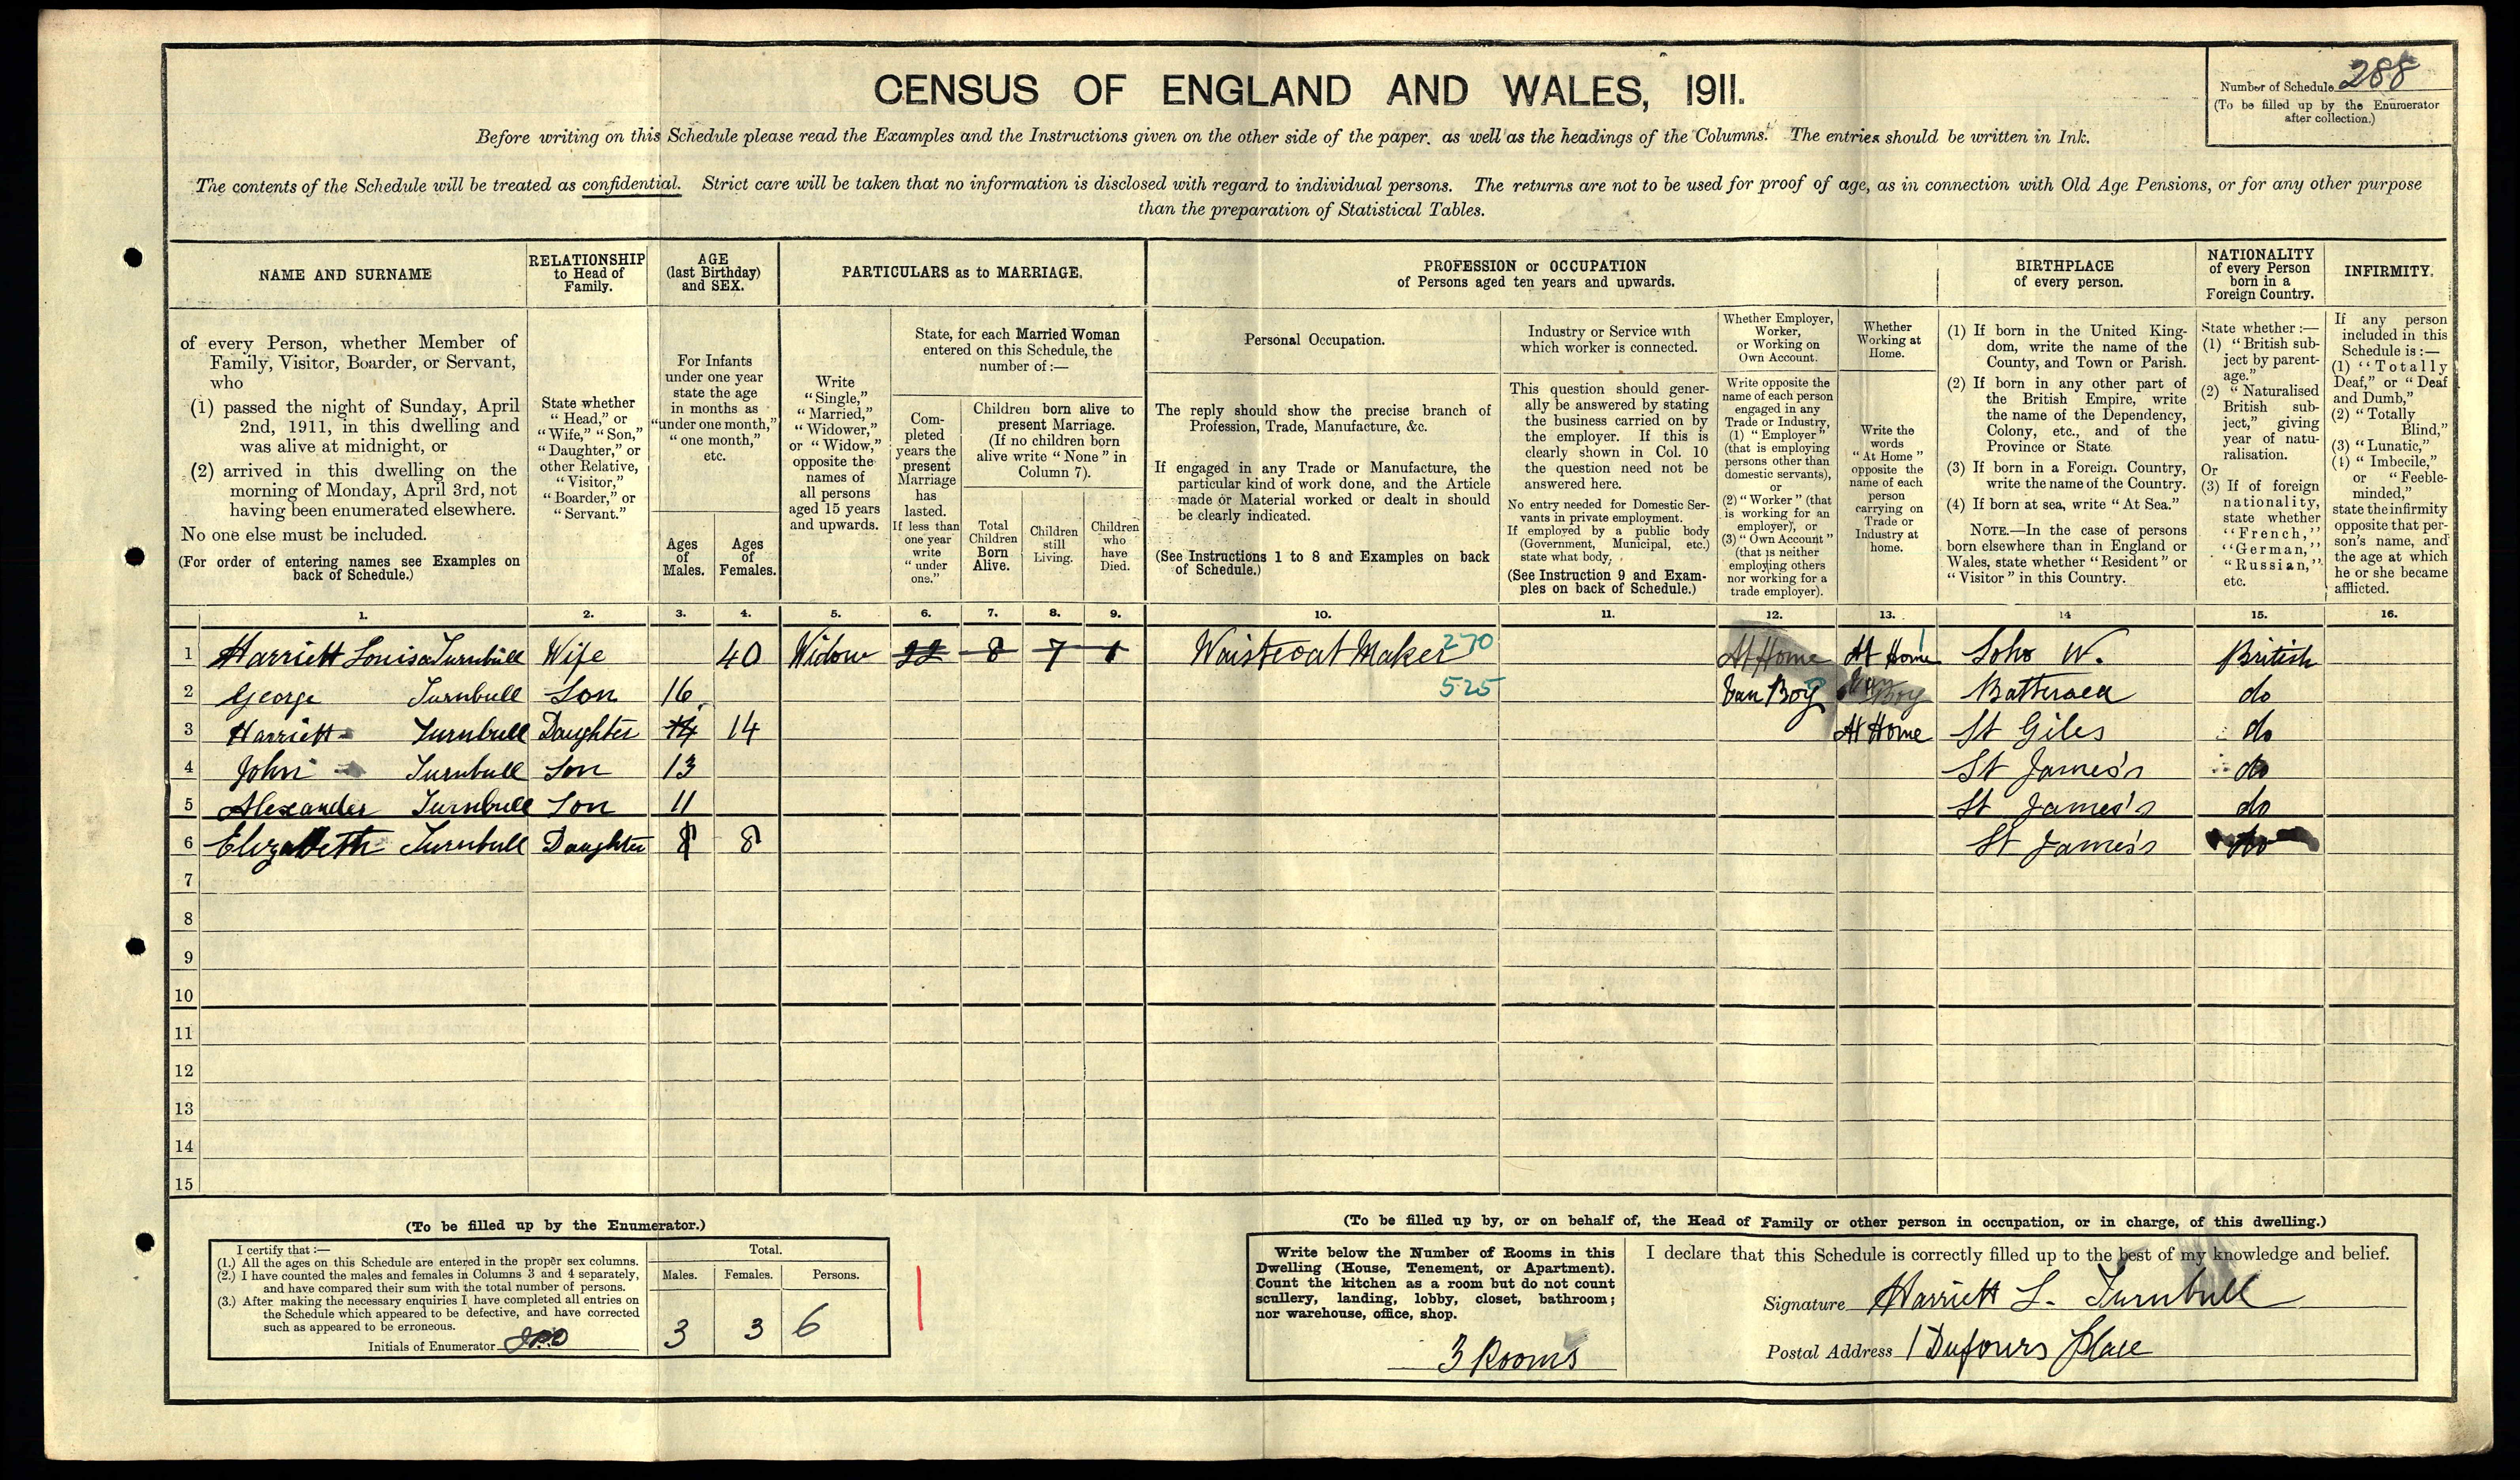 CENSUS OF ENGLAND AND WALES, 1911.
Number of Schedule 288
(To be filled up by the Enumerator
after collection.)
Before writing on this Schedule please read the Examples and the Instructions given on the other side of the paper, as well as the headings of the Columns. The entries should be written in Ink.
The contents of the Schedule will be treated as confidential. Strict care will be taken that no information is disclosed with regard to individual persons. The returns are not to be used for proof of age, as in connection with Old Age Pensions, or for any other purpose
than the preparation of Statistical Tables.
NAME AND SURNAME
of every Person, whether Member of
Family, Visitor, Boarder, or Servant,
who
(1) passed the night of Sunday, April
2nd, 1911, in this dwelling and
was alive at midnight, or
(2) arrived in this dwelling on the
morning of Monday, April 3rd, not
having been enumerated elsewhere.
No one else must be included.
(For order of entering names see Examples on
back of Schedule.)
RELATIONSHIP
to Head of
Family.
State whether
"Head," or
"Wife," "Son,"
"Daughter," or
other Relative,
"Visitor,"
"Boarder," or
"Servant."
AGE
(last Birthday)
and SEX.
For Infants
under one year
state the age
in months as
"under one month,"
"one month,"
etc.
Ages
of
Males.
Ages
of
Females.
PARTICULARS as to MARRIAGE.
Write
"Single,"
"Married,"
"Widower,"
or "Widow,"
opposite the
names of
all persons
aged 15 years
and upwards.
State, for each Married Woman
entered on this Schedule, the
number of:—
Com-
pleted
years the
present
Marriage
has
lasted.
If less than
one year
write
"under
one."
Children born alive to
present Marriage.
(If no children born
alive write "None" in
Column 7).
Total
Children
Born
Alive.
Children
still
Living.
Children
who
have
Died.
PROFESSION or OCCUPATION
of Persons aged ten years and upwards.
Personal Occupation.
The reply should show the precise branch of
Profession, Trade, Manufacture, &c.
If engaged in any Trade or Manufacture, the
particular kind of work done, and the Article
made or Material worked or dealt in should
be clearly indicated.
(See Instructions 1 to 8 and Examples on back
of Schedule.)
Industry or Service with
which worker is connected.
This question should gener-
ally be answered by stating
the business carried on by
the employer. If this is
clearly shown in Col. 10
the question need not be
answered here.
No entry needed for Domestic Ser-
vants in private employment.
If employed by a public body
(Government, Municipal, etc.)
state what body.
(See Instruction 9 and Exam-
ples on back of Schedule.)
Whether Employer,
Worker,
or Working on
Own Account.
Write opposite the
name of each person
engaged in any
Trade or Industry,
(1) "Employer"
(that is employing
persons other than
domestic servants),
or
(2) "Worker" (that
is working for an
employer), or
(3) "Own Account"
(that is neither
employing others
nor working for a
trade employer).
Whether
Working at
Home.
Write the
words
"At Home"
opposite the
name of each
person
carrying on
Trade or
Industry at
home.
BIRTHPLACE
of every person.
(1) If born in the United King-
dom, write the name of the
County, and Town or Parish.
(2) If born in any other part of
the British Empire, write
the name of the Dependency,
Colony, etc., and of the
Province or State
(3) If born in a Foreign Country,
write the name of the Country.
(4) If born at sea, write "At Sea."
NOTE.—In the case of persons
born elsewhere than in England or
Wales, state whether "Resident" or
"Visitor" in this Country.
NATIONALITY
of every Person
born in a
Foreign Country.
State whether:—
(1) "British sub-
ject by parent-
age."
(2) "Naturalised
British sub-
ject," giving
year of natu-
ralisation.
Or
(3) If of foreign
nationality,
state whether
"French,"
"German,"
"Russian,"
etc.
INFIRMITY.
If any person
included in this
Schedule is:—
(1) "Totally
Deaf," or "Deaf
and Dumb,"
(2) "Totally
Blind,"
(3) "Lunatic,"
(4) "Imbecile,"
or "Feeble-
minded,"
state the infirmity
opposite that per-
son's name, and
the age at which
he or she became
afflicted.
1. 2. 3. 4. 5. 6. 7. 8. 9. 10. 11. 12. 13. 14 15. 16.
1 Harriett Louisa Turnbull Wife 40 Widow 22 8 7 1 Waistcoat Maker 270 At Home At Home Soho W. British
2 George Turnbull Son 16 525 Van Boy Van Boy Battersea do
3 Harriett Turnbull Daughter 14 14 At Home St Giles do
4 John Turnbull Son 13 St James's do
5 Alexander Turnbull Son 11 St James's do
6 Elizabeth Turnbull Daughter 8 8 St James's do
7
8
9
10
11
12
13
14
15
(To be filled up by the Enumerator.)
I certify that:—
(1.) All the ages on this Schedule are entered in the proper sex columns.
(2.) I have counted the males and females in Columns 3 and 4 separately,
and have compared their sum with the total number of persons.
(3.) After making the necessary enquiries I have completed all entries on
the Schedule which appeared to be defective, and have corrected
such as appeared to be erroneous.
Initials of Enumerator
Total.
Males. Females. Persons.
3 3 6
(To be filled up by, or on behalf of, the Head of Family or other person in occupation, or in charge, of this dwelling.)
Write below the Number of Rooms in this
Dwelling (House, Tenement, or Apartment).
Count the kitchen as a room but do not count
scullery, landing, lobby, closet, bathroom;
nor warehouse, office, shop.
3 Rooms
I declare that this Schedule is correctly filled up to the best of my knowledge and belief.
Signature Harriett L. Turnbull
Postal Address 1 Dufours Place